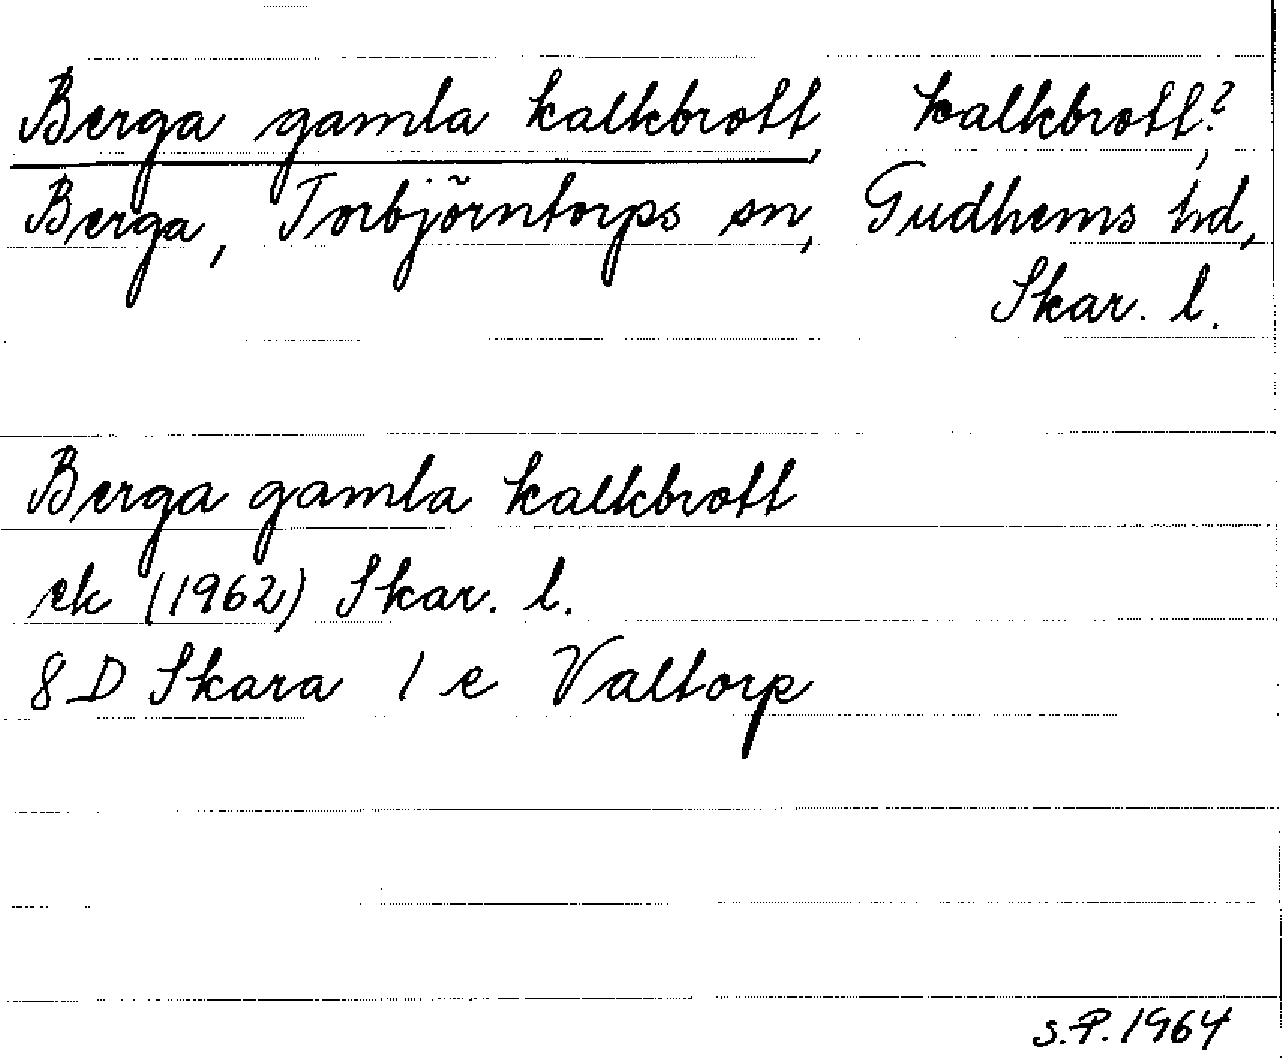 Berga gamla kalkbrott, kalkbrott?,
Berga, Torbjörntorps sn, Gudhems hd,
Skar. l.
Berga gamla kalkbrott
ek (1962) Skar. l.
8 D Skara 1 e Valtorp
S.P. 1964